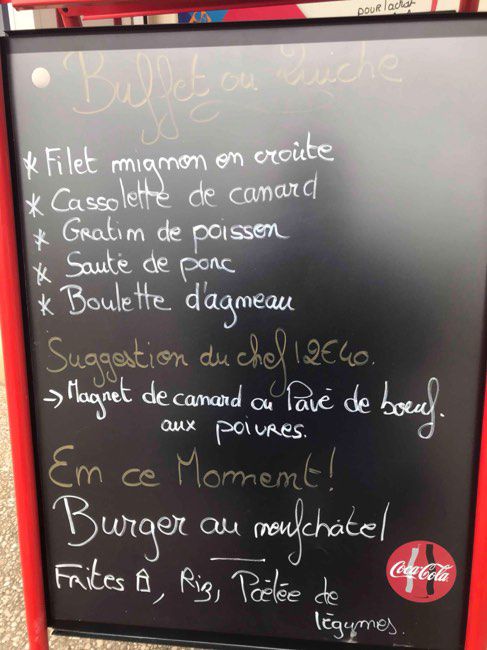 pour l'achat
Buffet ou Quiche
* Filet mignon en croûte
* Cassolette de canard
* Gratin de poisson
* Sauté de porc
* Boulette d'agneau
Suggestion du chef 12€40.
→ Magret de canard ou Pavé de boeuf.
aux poivres.
En ce Moment!
Burger au neufchâtel
Frites, Riz, Poêlée de
légumes.
Coca-Cola